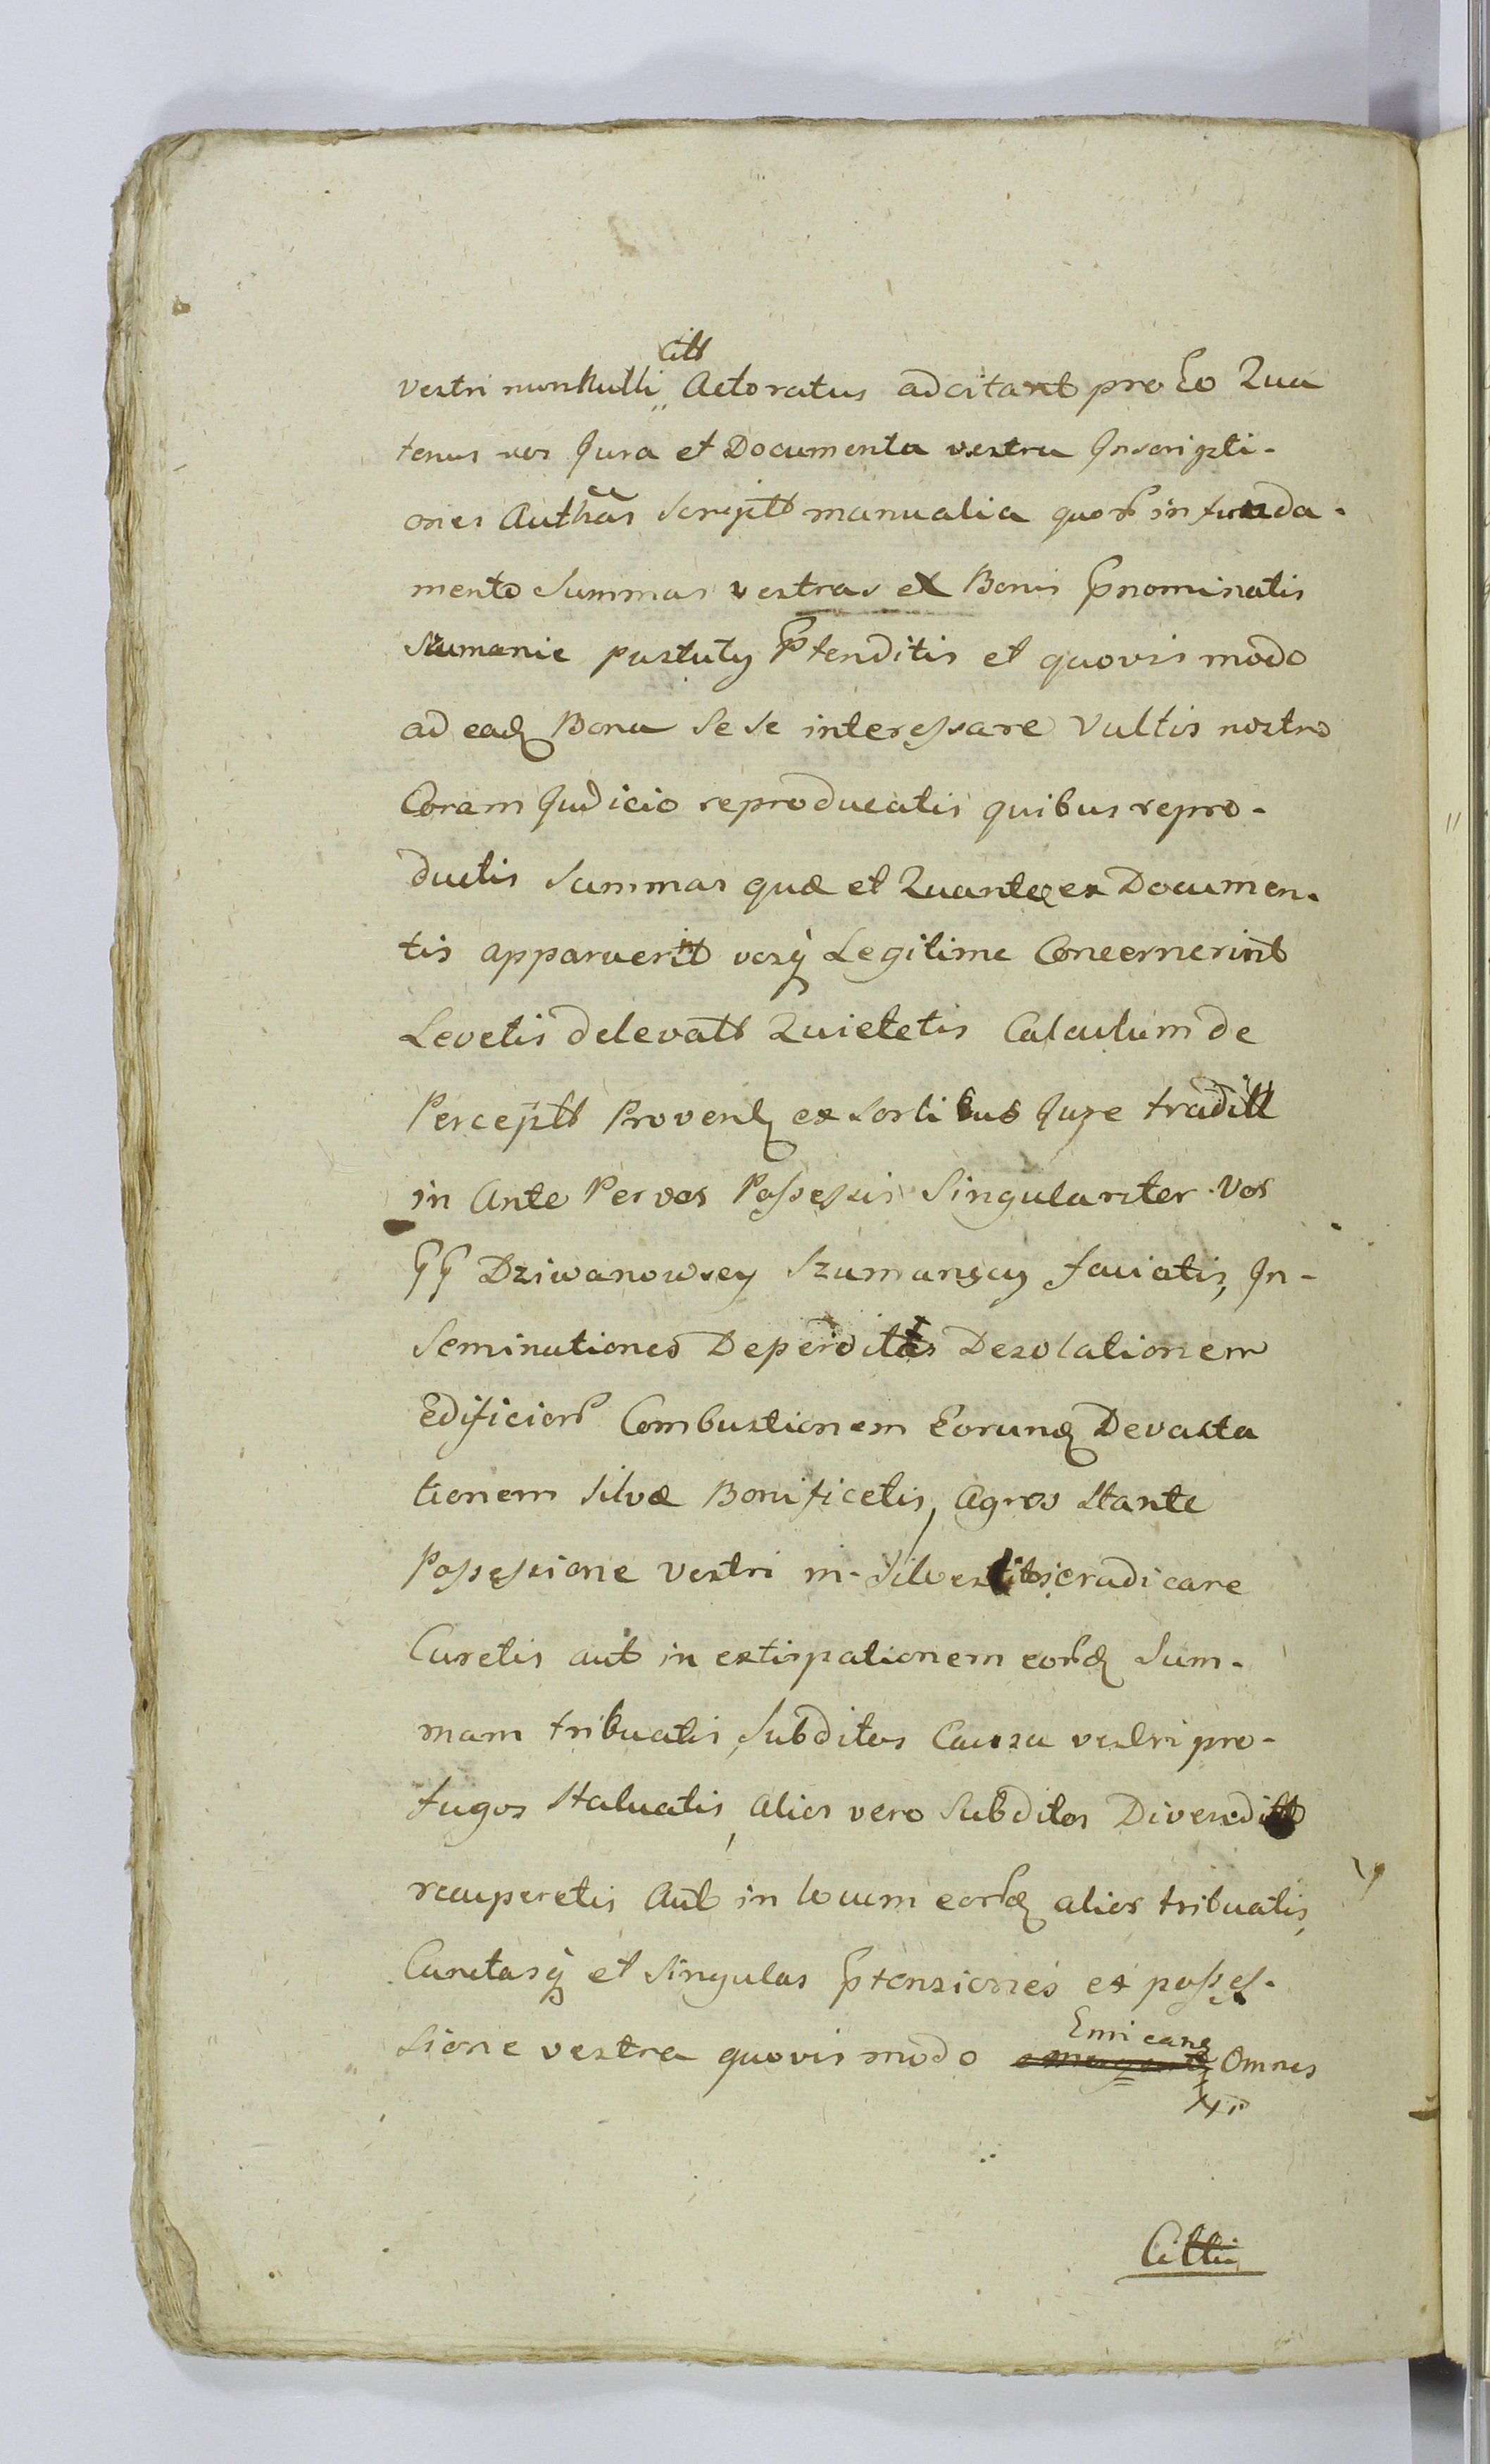 Citt
vestri nonnulli Actoratus adcitant pro Eo Qua
tenus vos Jura et Documenta vestra Inscripti-
ones Authcas Scriptt manualia quor in funda-
mento Summas vestras ex Bonis Pnominatis
Szumanie pustuty Ptenditis et quovis modo
ad eadq Bona Se Se interessare Vultis nostro
Coram Judicio reproducatis quibus repro-
ductis Summas quæ et Quantæ ex Documen-
tis apparuerint vosq Legitime Concernerint
Levetis delevatt Quietetis Calculum de
Perceptt Provent ex Sortibus Jure traditt
in Ante Per vos Possessis Singulariter Vos
GG Dziwanowscy Szumanscy faciatis, In-
Seminationes Deperditas Desolationem
Edificior Combustionem Eorund Devasta
tionem Silvæ Bonificetis, Agros Stante
Possessione Vestri in Silvest eradicare
Curetis aut in extirpationem eord Sum-
mam tribuatis, Subditos Causa vestri pro-
fugos Statuatis, Alios vero Subditos Divenditt
recuperetis Aut in locum eord alios tribuatis,
Cunctasq et Singulas Ptensiones ex posses-
Emicant
sione vestra quovis modo Omnes
Citti